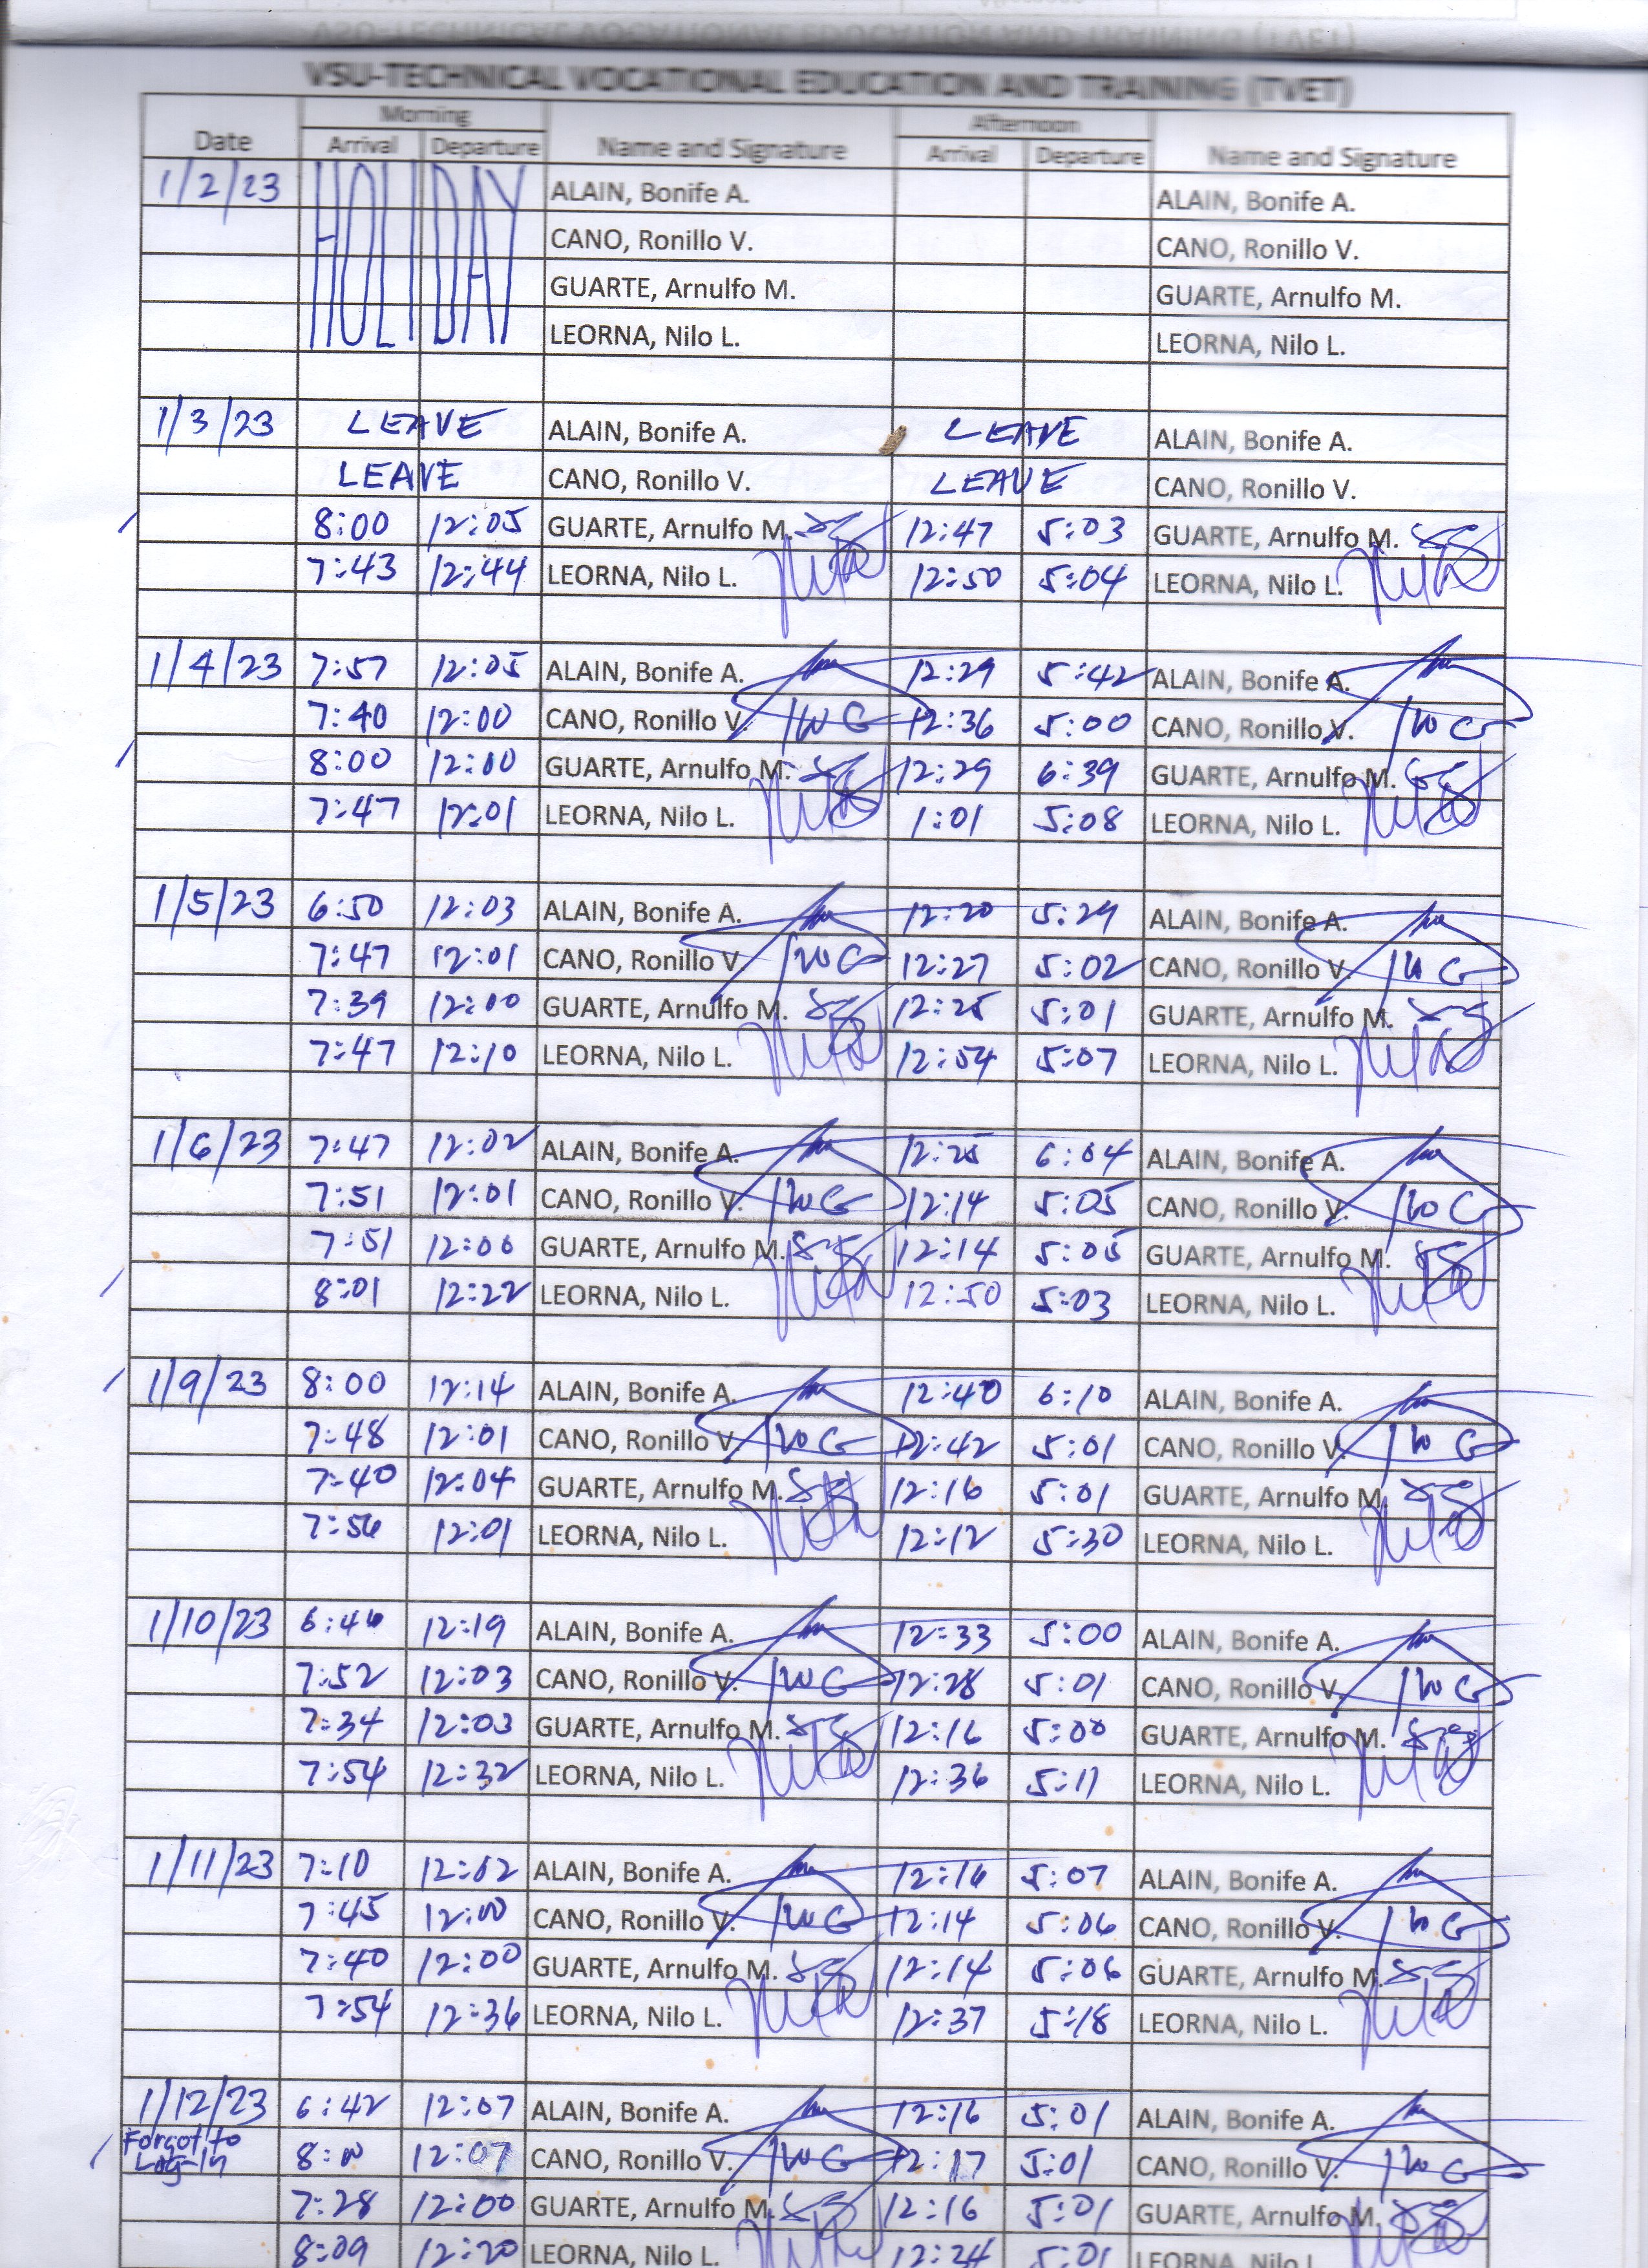 VSU-TECHNICAL VOCATIONAL EDUCATION AND TRAINING (TVET)
Morning Afternoon
Date Arrival Departure Name and Signature Arrival Departure Name and Signature
1/2/23 HOLIDAY ALAIN, Bonife A. ALAIN, Bonife A.
CANO, Ronillo V. CANO, Ronillo V.
GUARTE, Arnulfo M. GUARTE, Arnulfo M.
LEORNA, Nilo L. LEORNA, Nilo L.
1/3/23 LEAVE ALAIN, Bonife A. LEAVE ALAIN, Bonife A.
LEAVE CANO, Ronillo V. LEAVE CANO, Ronillo V.
8:00 12:05 GUARTE, Arnulfo M. 12:47 5:03 GUARTE, Arnulfo M.
7:43 12:44 LEORNA, Nilo L. 12:50 5:04 LEORNA, Nilo L.
1/4/23 7:57 12:05 ALAIN, Bonife A. 12:29 5:42 ALAIN, Bonife A.
7:40 12:00 CANO, Ronillo V. 12:36 5:00 CANO, Ronillo V.
8:00 12:00 GUARTE, Arnulfo M. 12:29 6:39 GUARTE, Arnulfo M.
7:47 12:01 LEORNA, Nilo L. 1:01 5:08 LEORNA, Nilo L.
1/5/23 6:50 12:03 ALAIN, Bonife A. 12:20 5:29 ALAIN, Bonife A.
7:47 12:01 CANO, Ronillo V. 12:27 5:02 CANO, Ronillo V.
7:39 12:00 GUARTE, Arnulfo M. 12:25 5:01 GUARTE, Arnulfo M.
7:47 12:10 LEORNA, Nilo L. 12:54 5:07 LEORNA, Nilo L.
1/6/23 7:47 12:02 ALAIN, Bonife A. 12:25 6:04 ALAIN, Bonife A.
7:51 12:01 CANO, Ronillo V. 12:14 5:05 CANO, Ronillo V.
7:51 12:00 GUARTE, Arnulfo M. 12:14 5:05 GUARTE, Arnulfo M.
8:01 12:22 LEORNA, Nilo L. 12:50 5:03 LEORNA, Nilo L.
1/9/23 8:00 12:14 ALAIN, Bonife A. 12:40 6:10 ALAIN, Bonife A.
7:48 12:01 CANO, Ronillo V. 12:42 5:01 CANO, Ronillo V.
7:40 12:04 GUARTE, Arnulfo M. 12:16 5:01 GUARTE, Arnulfo M.
7:56 12:01 LEORNA, Nilo L. 12:12 5:30 LEORNA, Nilo L.
1/10/23 6:46 12:19 ALAIN, Bonife A. 12:33 5:00 ALAIN, Bonife A.
7:52 12:03 CANO, Ronillo V. 12:28 5:01 CANO, Ronillo V.
7:34 12:03 GUARTE, Arnulfo M. 12:16 5:00 GUARTE, Arnulfo M.
7:54 12:32 LEORNA, Nilo L. 12:36 5:11 LEORNA, Nilo L.
1/11/23 7:10 12:02 ALAIN, Bonife A. 12:16 5:07 ALAIN, Bonife A.
7:45 12:00 CANO, Ronillo V. 12:14 5:06 CANO, Ronillo V.
7:40 12:00 GUARTE, Arnulfo M. 12:14 5:06 GUARTE, Arnulfo M.
7:54 12:36 LEORNA, Nilo L. 12:37 5:18 LEORNA, Nilo L.
1/12/23 6:42 12:07 ALAIN, Bonife A. 12:16 5:01 ALAIN, Bonife A.
Forgot to
Log-In 8:00 12:07 CANO, Ronillo V. 12:17 5:01 CANO, Ronillo V.
7:28 12:00 GUARTE, Arnulfo M. 12:16 5:01 GUARTE, Arnulfo M.
8:09 12:20 LEORNA, Nilo L. 12:24 5:01 LEORNA, Nilo L.